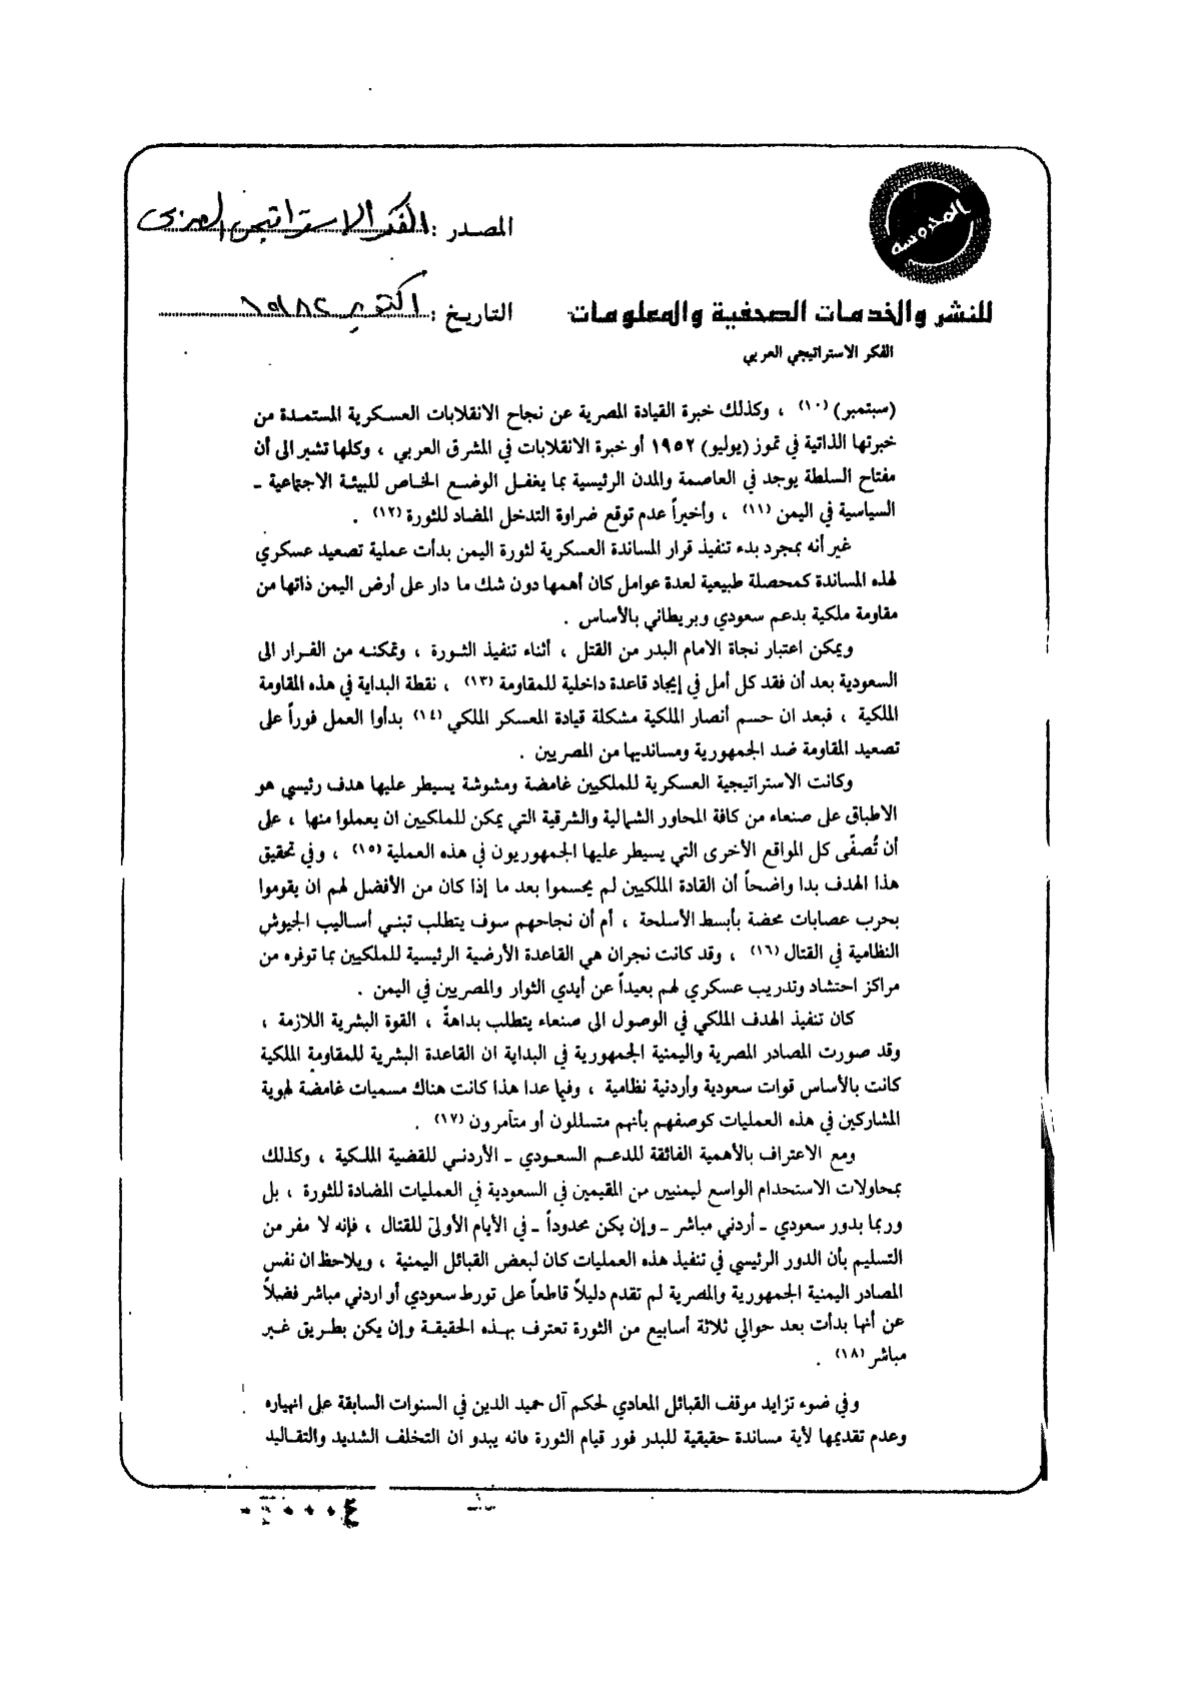 المحروسة
المصدر : الفكر الاستراتيجي العربي
للنشر والخدمات الصحفية والمعلومات
التاريخ : اكتوبر ١٩٨٢
الفكر الاستراتيجي العربي
(سبتمبر) (١٠) ، وكذلك خبرة القيادة المصرية عن نجاح الانقلابات العسكرية المستمدة من
خبرتها الذاتية في تموز (يوليو) ١٩٥٢ أو خبرة الانقلابات في المشرق العربي ، وكلها تشير الى أن
مفتاح السلطة يوجد في العاصمة والمدن الرئيسية بما يغفل الوضع الخاص للبيئة الاجتماعية -
السياسية في اليمن (١١) ، وأخيراً عدم توقع ضراوة التدخل المضاد للثورة (١٢) .
غير أنه بمجرد بدء تنفيذ قرار المساندة العسكرية لثورة اليمن بدأت عملية تصعيد عسكري
لهذه المساندة كمحصلة طبيعية لعدة عوامل كان أهمها دون شك ما دار على أرض اليمن ذاتها من
مقاومة ملكية بدعم سعودي وبريطاني بالأساس .
ويمكن اعتبار نجاة الامام البدر من القتل ، أثناء تنفيذ الثورة ، وتمكنه من الفرار الى
السعودية بعد أن فقد كل أمل في إيجاد قاعدة داخلية للمقاومة (١٣) ، نقطة البداية في هذه المقاومة
الملكية ، فبعد ان حسم أنصار الملكية مشكلة قيادة المعسكر الملكي (١٤) بدأوا العمل فوراً على
تصعيد المقاومة ضد الجمهورية ومسانديها من المصريين .
وكانت الاستراتيجية العسكرية للملكيين غامضة ومشوشة يسيطر عليها هدف رئيسي هو
الاطباق على صنعاء من كافة المحاور الشمالية والشرقية التي يمكن للملكيين ان يعملوا منها ، على
أن تُصفّى كل المواقع الأخرى التي يسيطر عليها الجمهوريون في هذه العملية (١٥) ، وفي تحقيق
هذا الهدف بدا واضحاً أن القادة الملكيين لم يحسموا بعد ما إذا كان من الأفضل لهم ان يقوموا
بحرب عصابات محضة بأبسط الأسلحة ، أم أن نجاحهم سوف يتطلب تبني أساليب الجيوش
النظامية في القتال (١٦) ، وقد كانت نجران هي القاعدة الأرضية الرئيسية للملكيين بما توفره من
مراكز احتشاد وتدريب عسكري لهم بعيداً عن أيدي الثوار والمصريين في اليمن .
كان تنفيذ الهدف الملكي في الوصول الى صنعاء يتطلب بداهةً ، القوة البشرية اللازمة ،
وقد صورت المصادر المصرية واليمنية الجمهورية في البداية ان القاعدة البشرية للمقاومة الملكية
كانت بالأساس قوات سعودية وأردنية نظامية ، وفيما عدا هذا كانت هناك مسميات غامضة لهوية
المشاركين في هذه العمليات كوصفهم بأنهم متسللون أو متآمرون (١٧) .
ومع الاعتراف بالأهمية الفائقة للدعم السعودي - الأردني للقضية الملكية ، وكذلك
بمحاولات الاستخدام الواسع ليمنيين من المقيمين في السعودية في العمليات المضادة للثورة ، بل
وربما بدور سعودي - أردني مباشر - وإن يكن محدوداً - في الأيام الأولى للقتال ، فإنه لا مفر من
التسليم بأن الدور الرئيسي في تنفيذ هذه العمليات كان لبعض القبائل اليمنية ، ويلاحظ ان نفس
المصادر اليمنية الجمهورية والمصرية لم تقدم دليلاً قاطعاً على تورط سعودي أو اردني مباشر فضلاً
عن أنها بدأت بعد حوالي ثلاثة أسابيع من الثورة تعترف بهذه الحقيقة وإن يكن بطريق غير
مباشر (١٨) .
وفي ضوء تزايد موقف القبائل المعادي لحكم آل حميد الدين في السنوات السابقة على انهياره
وعدم تقديمها لأية مساندة حقيقية للبدر فور قيام الثورة فانه يبدو ان التخلف الشديد والتقاليد